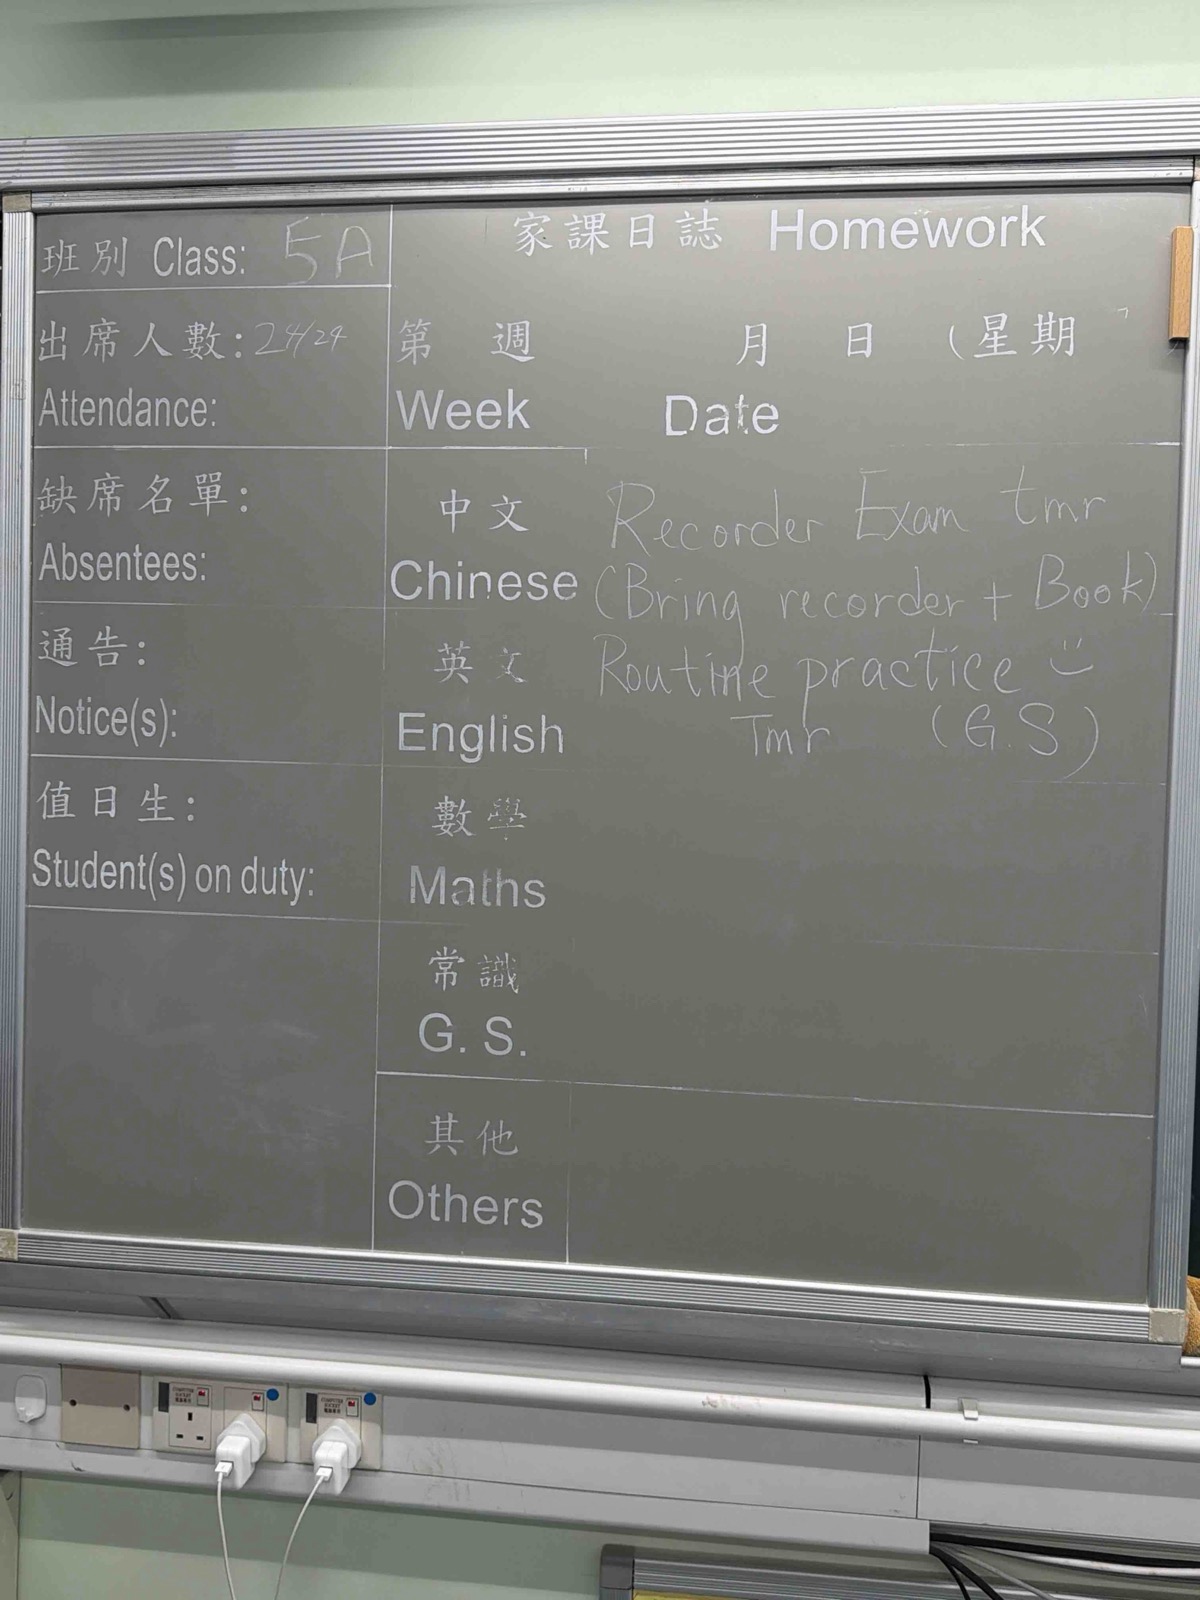 班別 Class: 5A
出席人數: 24/24
Attendance:
缺席名單:
Absentees:
通告:
Notice(s):
值日生:
Student(s) on duty:
家課日誌 Homework
第 週 月 日 (星期
Week Date
中文
Chinese
英文
English
數學
Maths
常識
G. S.
其他
Others
Recorder Exam tmr
(Bring recorder + Book)
Routine practice
Tmr (G.S)